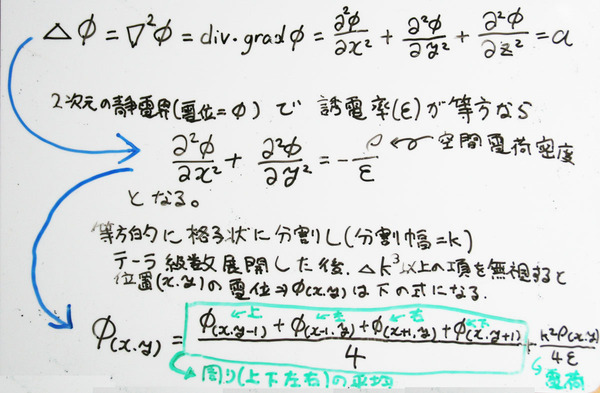 △φ = ∇²φ = div・gradφ = ∂²φ/∂x² + ∂²φ/∂y² + ∂²φ/∂z² = a
2次元の静電界(電位=φ)で 誘電率(ε)が等方なら
∂²φ/∂x² + ∂²φ/∂y² = -ρ/ε ←空間電荷密度
となる。
等方的に格子状に分割し(分割幅=k)
テーラ級数展開した後、△k³以上の項を無視すると
位置(x,y)の電位⇒φ(x,y)は下の式になる.
φ(x,y) = (φ(x,y-1)←上 + φ(x-1,y)←左 + φ(x+1,y)←右 + φ(x,y+1)←下)/4 + k²ρ(x,y)/4ε
周り(上下左右)の平均 電荷